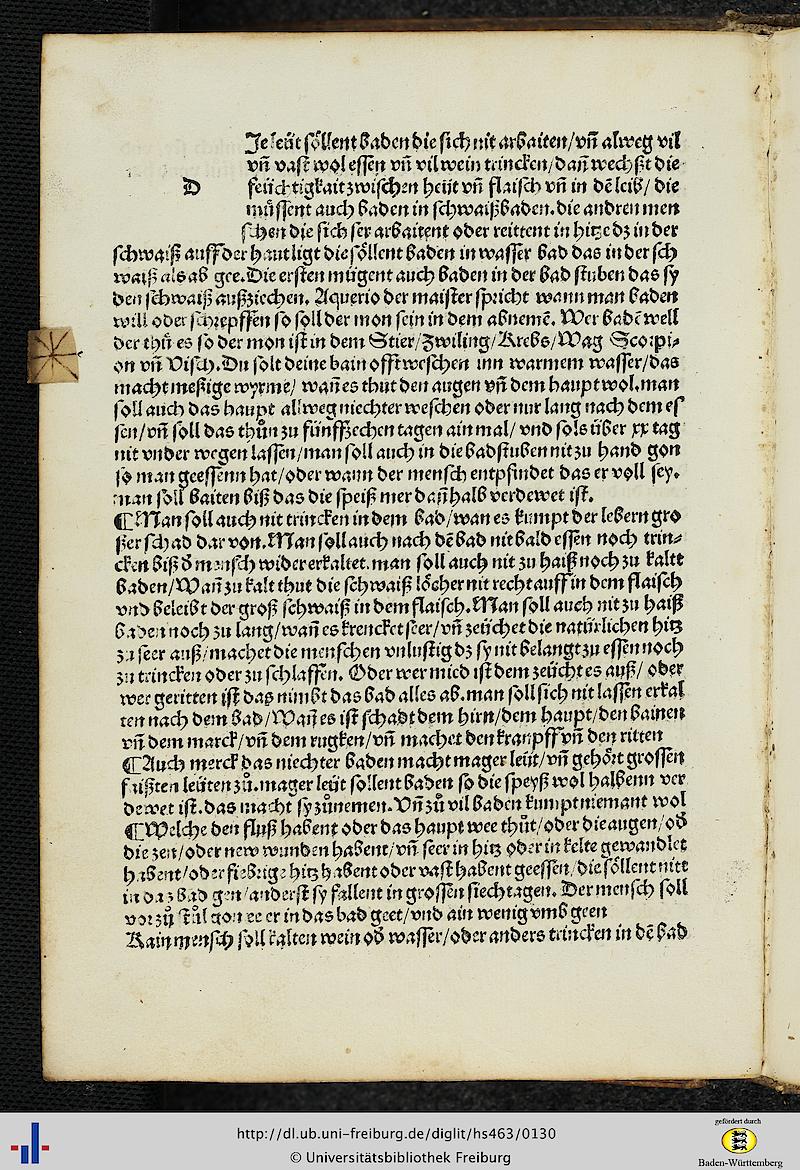 Je leüt söllent baden die sich nit arbaiten/vñ alweg vil
vñ vast wol essen vñ vil wein trincken/dañ wechßt die
D
feüchtigkait zwischen heüt vñ flaisch vñ in dẽ leib/ die
müssent auch baden in schwaißbaden. die andren men
schen die sich ser arbaitent oder reittent in hitze dz in der
schwaiß auff der haut ligt die söllent baden in wasser bad das in der sch
waiß als ab gee. Die ersten mügent auch baden in der bad stuben das sy
den schwaiß außziechen. Aquerio der maister spricht wann man baden
will oder schrepffen so soll der mon sein in dem abnemẽ. Wer badẽ well
der thů es so der mon ist in dem Stier/Zwiling/Krebs/Wag Scorpi-
on vñ Visch. Du solt deine bain offt weschen inn warmem wasser/das
macht meßige wyrme/ wañ es thut den augen vñ dem haupt wol. man
soll auch das haupt allweg niechter weschen oder nur lang nach dem es
sen/vñ soll das thůn zu fünffzechen tagen ain mal/ vnd sols über xx tag
nit vnder wegen lassen/man soll auch in die badstuben nit zu hand gon
so man geessenn hat/oder wann der mensch entpfindet das er voll sey.
man soll baiten biß das die speiß mer dañ halb verdewet ist.
¶ Man soll auch nit trincken in dem bad/wan es kumpt der lebern gro
ßer schad dar von. Man soll auch nach dẽ bad nit bald essen noch trin-
cken biß d mensch wider erkaltet. man soll auch nit zu haiß noch zu kaltt
baden/Wañ zu kalt thut die schwaiß löcher nit recht auff in dem flaisch
vnd beleibt der groß schwaiß in dem flaisch. Man soll auch nit zu haiß
baden noch zu lang/wañ es krencket seer/vñ zeüchet die natürlichen hitz
zu seer auß/machet die menschen vnlustig dz sy nit belangt zu essen noch
zu trincken oder zu schlaffen. Oder wer mied ist dem zeücht es auß/ oder
wer geritten ist das nimbt das bad alles ab. man soll sich nit lassen erkal
ten nach dem bad/Wañ es ist schadt dem hirn/dem haupt/den bainen
vñ dem marck/vñ dem rugken/vñ machet den krampff vñ den ritten
¶ Auch merck das niechter baden macht mager leüt/vñ gehört grossen
faißten leüten zů. mager leüt sollent baden so die speyß wol halbenn ver
dewet ist. das macht sy zůnemen. Vñ zů vil baden kumpt niemant wol
¶ Welche den fluß habent oder das haupt wee thůt/oder die augen/od
die zen/oder new wunden habent/vñ seer in hitz oder in kelte gewandlet
habent/oder fiebrige hitz habent oder vast habent geessen/die söllent nitt
in daz bad gen/anderst sy fallent in grossen siechtagen. Der mensch soll
vor zů stůl gon ee er in das bad geet/vnd ain wenig vmb geen
Kain mensch soll kalten wein od wasser/oder anders trincken in dẽ bad
http://dl.ub.uni-freiburg.de/diglit/hs463/0130
© Universitätsbibliothek Freiburg
gefördert durch
Baden-Württemberg